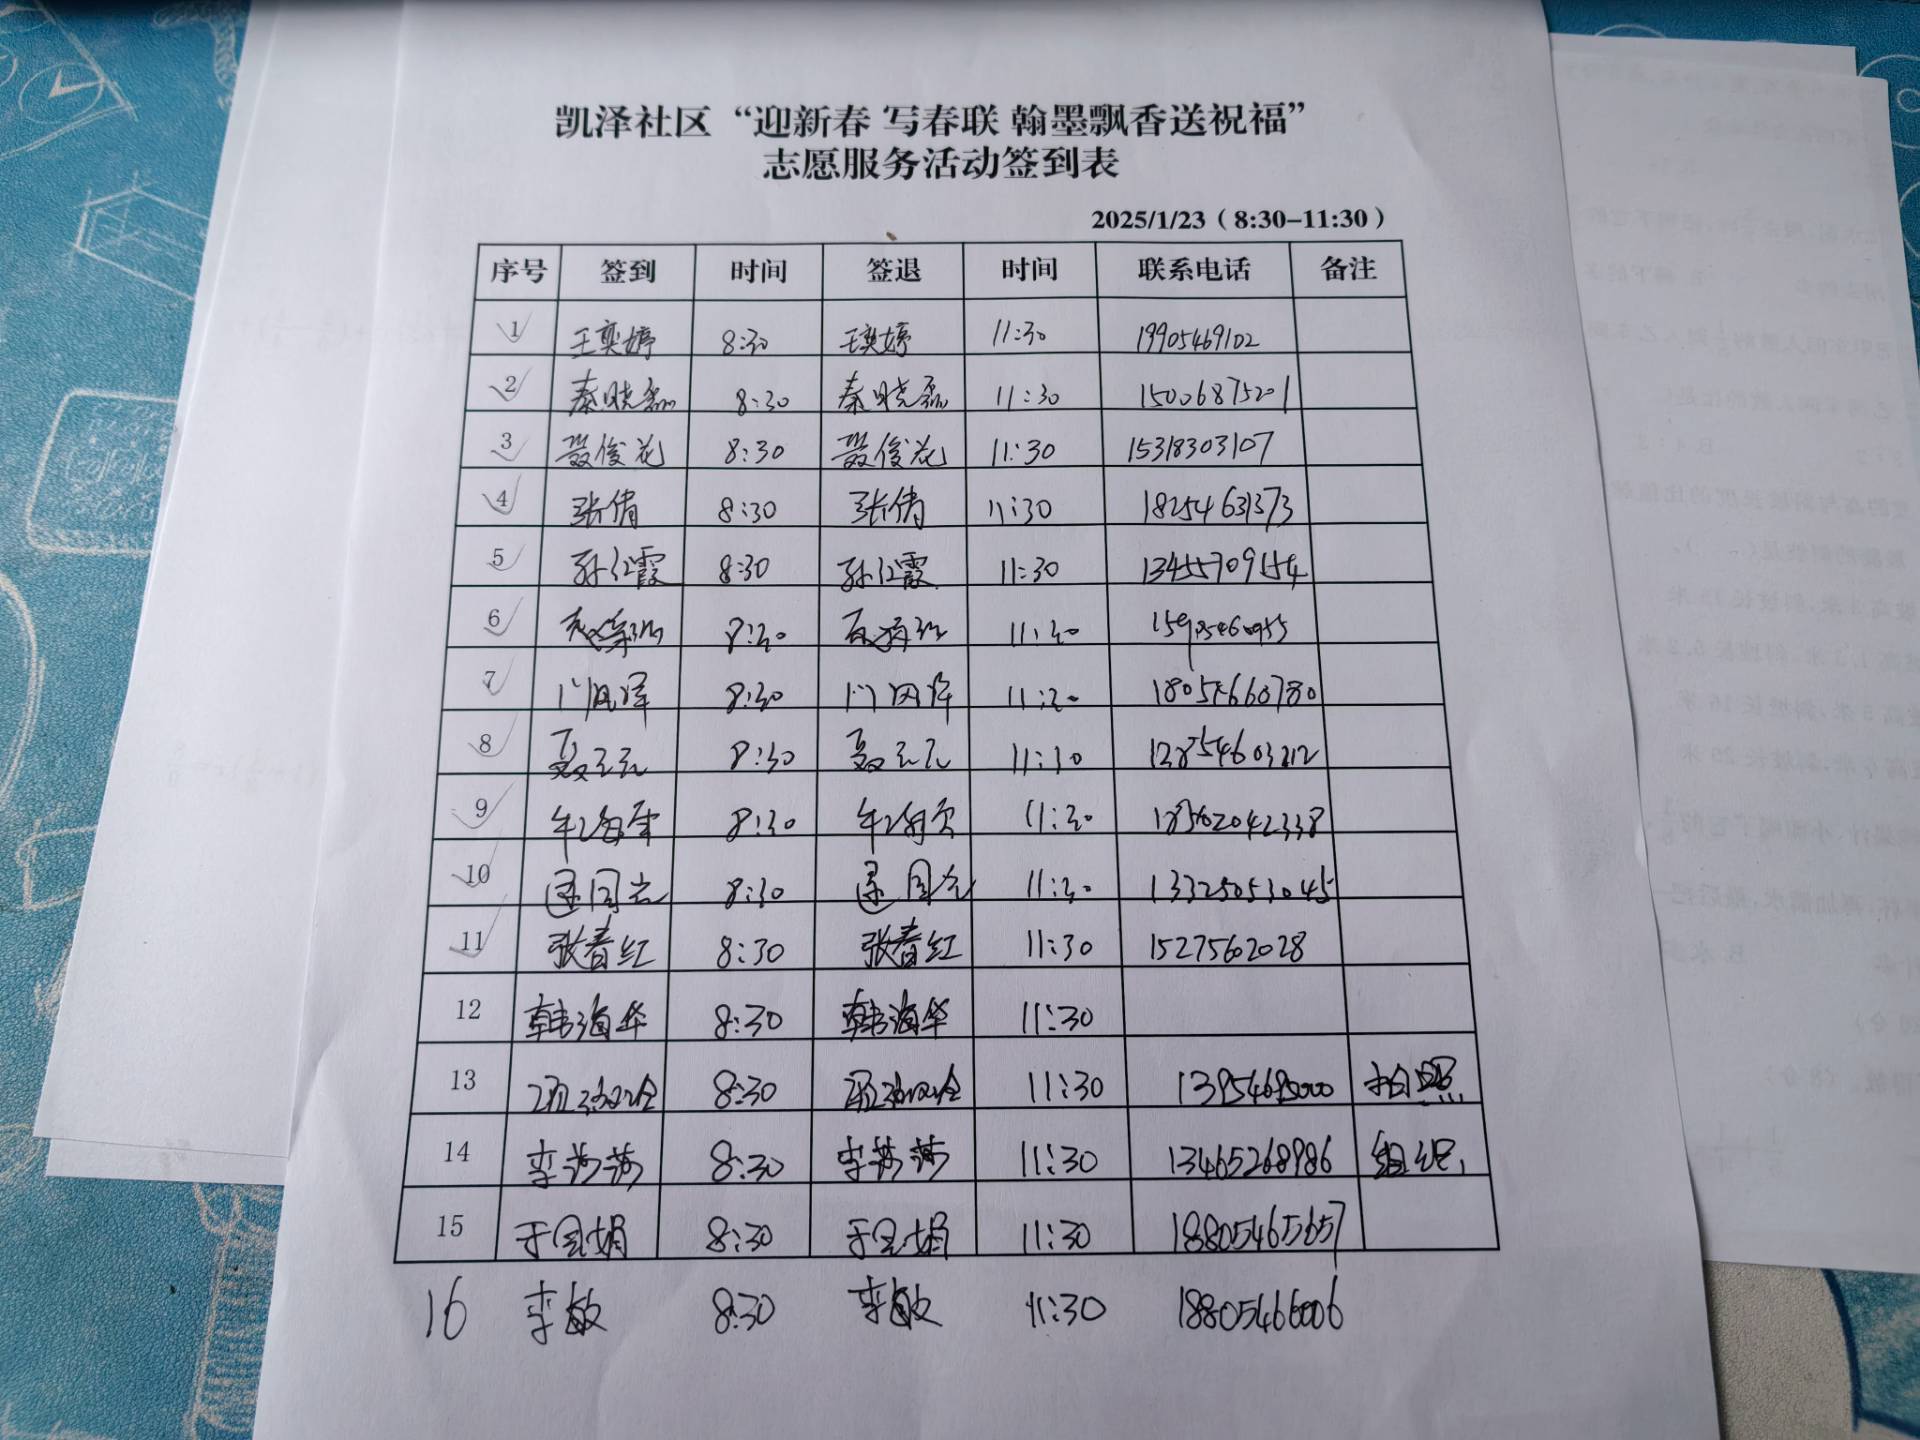 凯泽社区“迎新春 写春联 翰墨飘香送祝福”
志愿服务活动签到表
2025/1/23（8:30-11:30）
序号 签到 时间 签退 时间 联系电话 备注
1 王奕婷 8:30 王奕婷 11:30 19905469102
2 秦晓磊 8:30 秦晓磊 11:30 15006875201
3 聂俊花 8:30 聂俊花 11:30 15318303107
4 张倩 8:30 张倩 11:30 18254631373
5 孙红霞 8:30 孙红霞 11:30 13455709154
6 8:30 11:30 15905460955
7 8:30 11:30 18054660780
8 8:30 11:30
9 8:30 11:30 18562042338
10 8:30 11:30 13325053045
11 张春红 8:30 张春红 11:30 1527562028
12 韩海华 8:30 韩海华 11:30
13 8:30 11:30 拍照
14 李莎莎 8:30 李莎莎 11:30 13465268986 组织
15 于金娟 8:30 于金娟 11:30 18805465657
16 李敏 8:30 李敏 11:30 18805466006